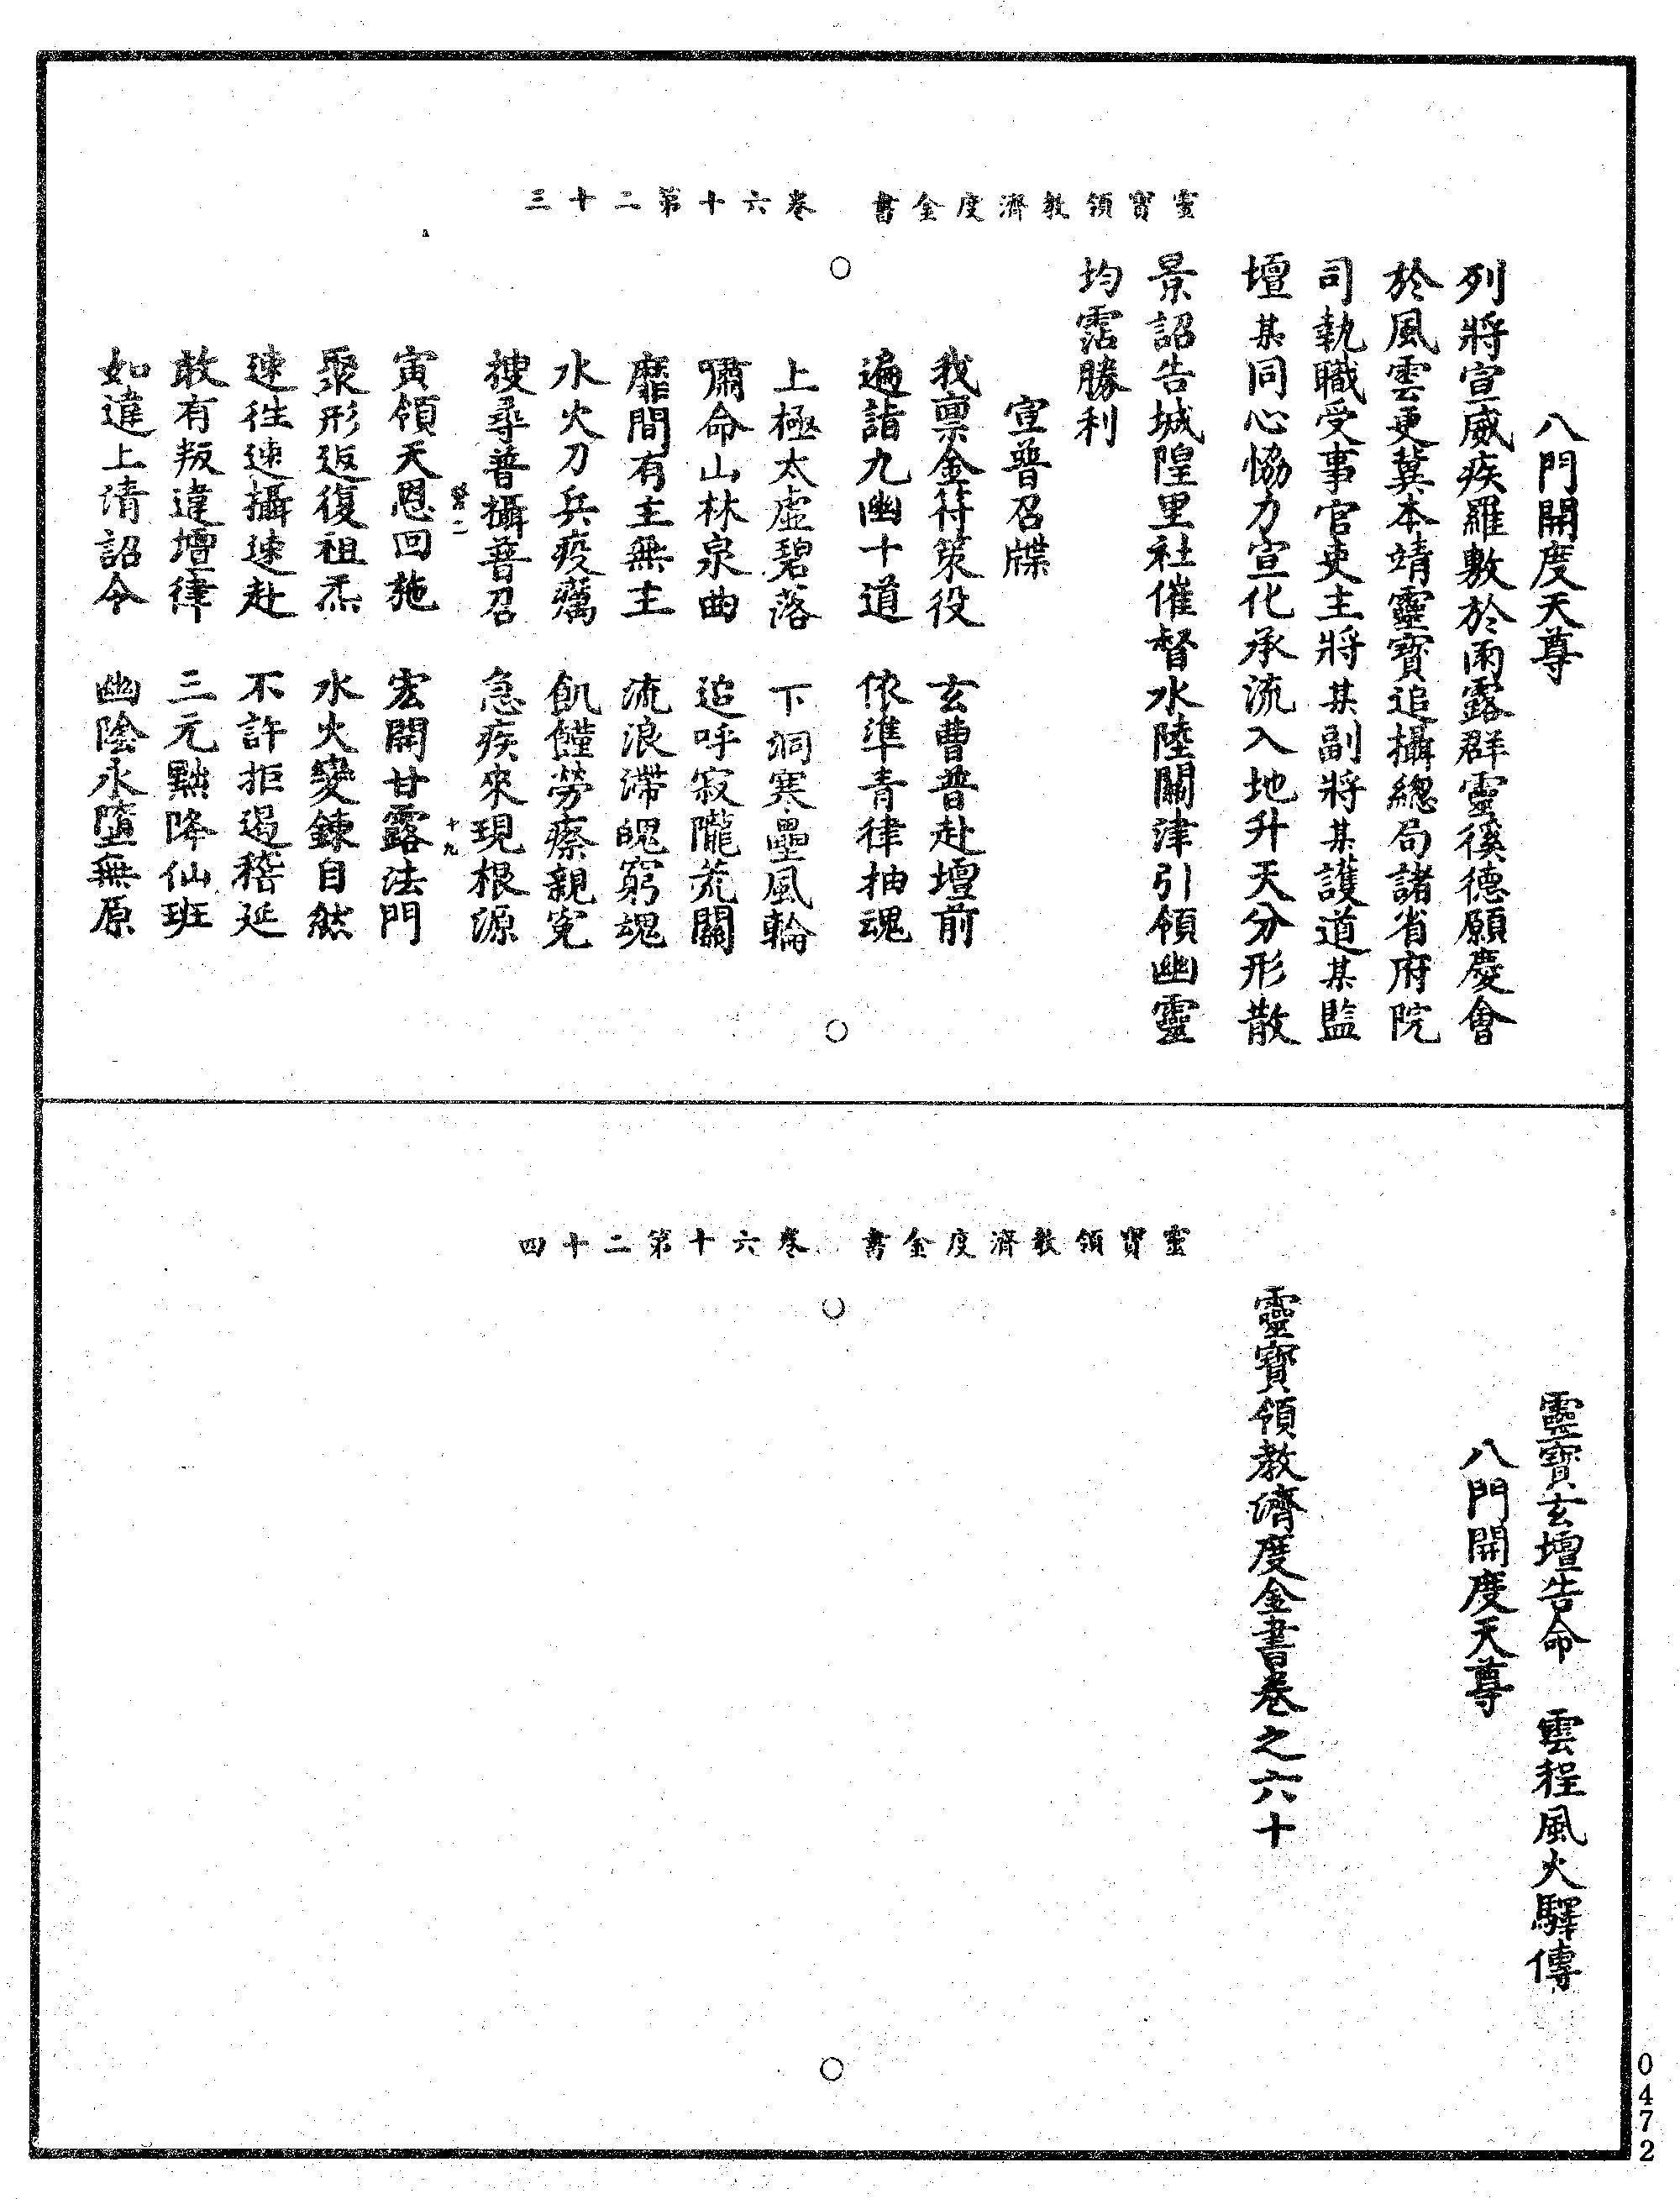 靈寶領教濟度金書　卷六十第二十三
八門開度天尊
列將宣威疾羅敷於雨露群靈徯德願慶會
於風雲更冀本靖靈寶追攝總局諸省府院
司執職受事官吏主將某副將某護道某監
壇某同心恊力宣化承流入地升天分形散
景詔告城隍里社催督水陸關津引領幽靈
均霑勝利
宣普召牒
我禀金符策役　玄曹普赴壇前
遍詣九幽十道　依準青律抽魂
上極太虛碧落　下洞寒壘風輪
嘯命山林泉曲　追呼寂隴荒關
靡間有主無主　流浪滯魄窮魂
水火刀兵疫癘　飢饉勞瘵親冤
搜尋普攝普召　急疾來現根源
二　十九
寅領天恩回施　宏開甘露法門
聚形返復祖炁　水火變鍊自然
速徃速攝速赴　不許拒遏稽延
敢有叛違壇律　三元黜降仙班
如違上清詔令　幽陰永墮無原
靈寶領教濟度金書　卷六十第二十四
靈寶玄壇告命　雲程風火驛傳
八門開度天尊
靈寶領教濟度金書卷之六十
0472